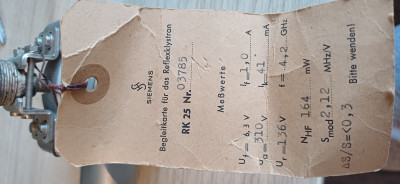 SIEMENS
Begleitkarte für das Reflexklystron
RK 25 Nr. 03785
Meßwerte
U_f = 6,3 V I_f = 1,0 A
U_a = 310 V I_k = 41 mA
U_r = -136 V f = 4,2 GHz
N_HF 164 mW
S_mod 2,12 MHz/V
ΔS/S = <0,3 Bitte wenden!